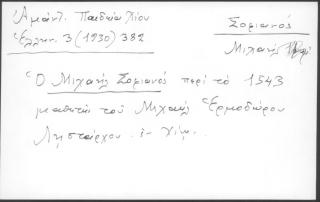 Ἀμάντ. Παιδεία Χίου
Σοριανός
Ἑλλην. 3 (1930) 382
Μιχαὴλ
Ὁ Μιχαὴλ Σοριανὸς περὶ τὸ 1543
μαθητὴς τοῦ Μιχαὴλ Ἑρμοδώρου
Λῃστάρχου ἐν Χίῳ.